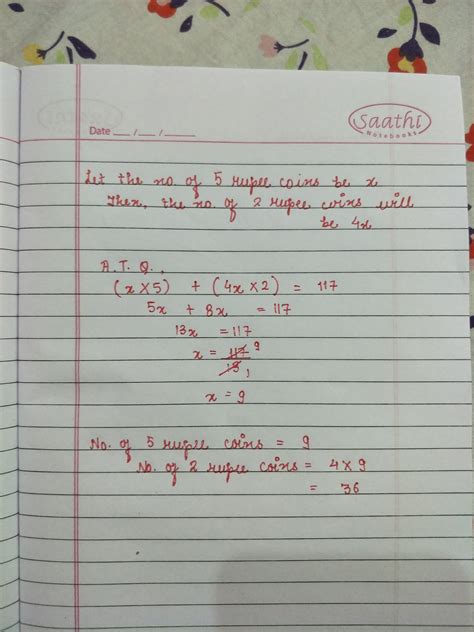 Saathi
Notebooks
Date __ / __ / ____
Let the no. of 5 rupee coins be x
Then, the no. of 2 rupee coins will
be 4x
A.T.Q.,
(x × 5) + (4x × 2) = 117
5x + 8x = 117
13x = 117
x = 117 9
13 1
x = 9
No. of 5 rupee coins = 9
No. of 2 rupee coins = 4 × 9
= 36